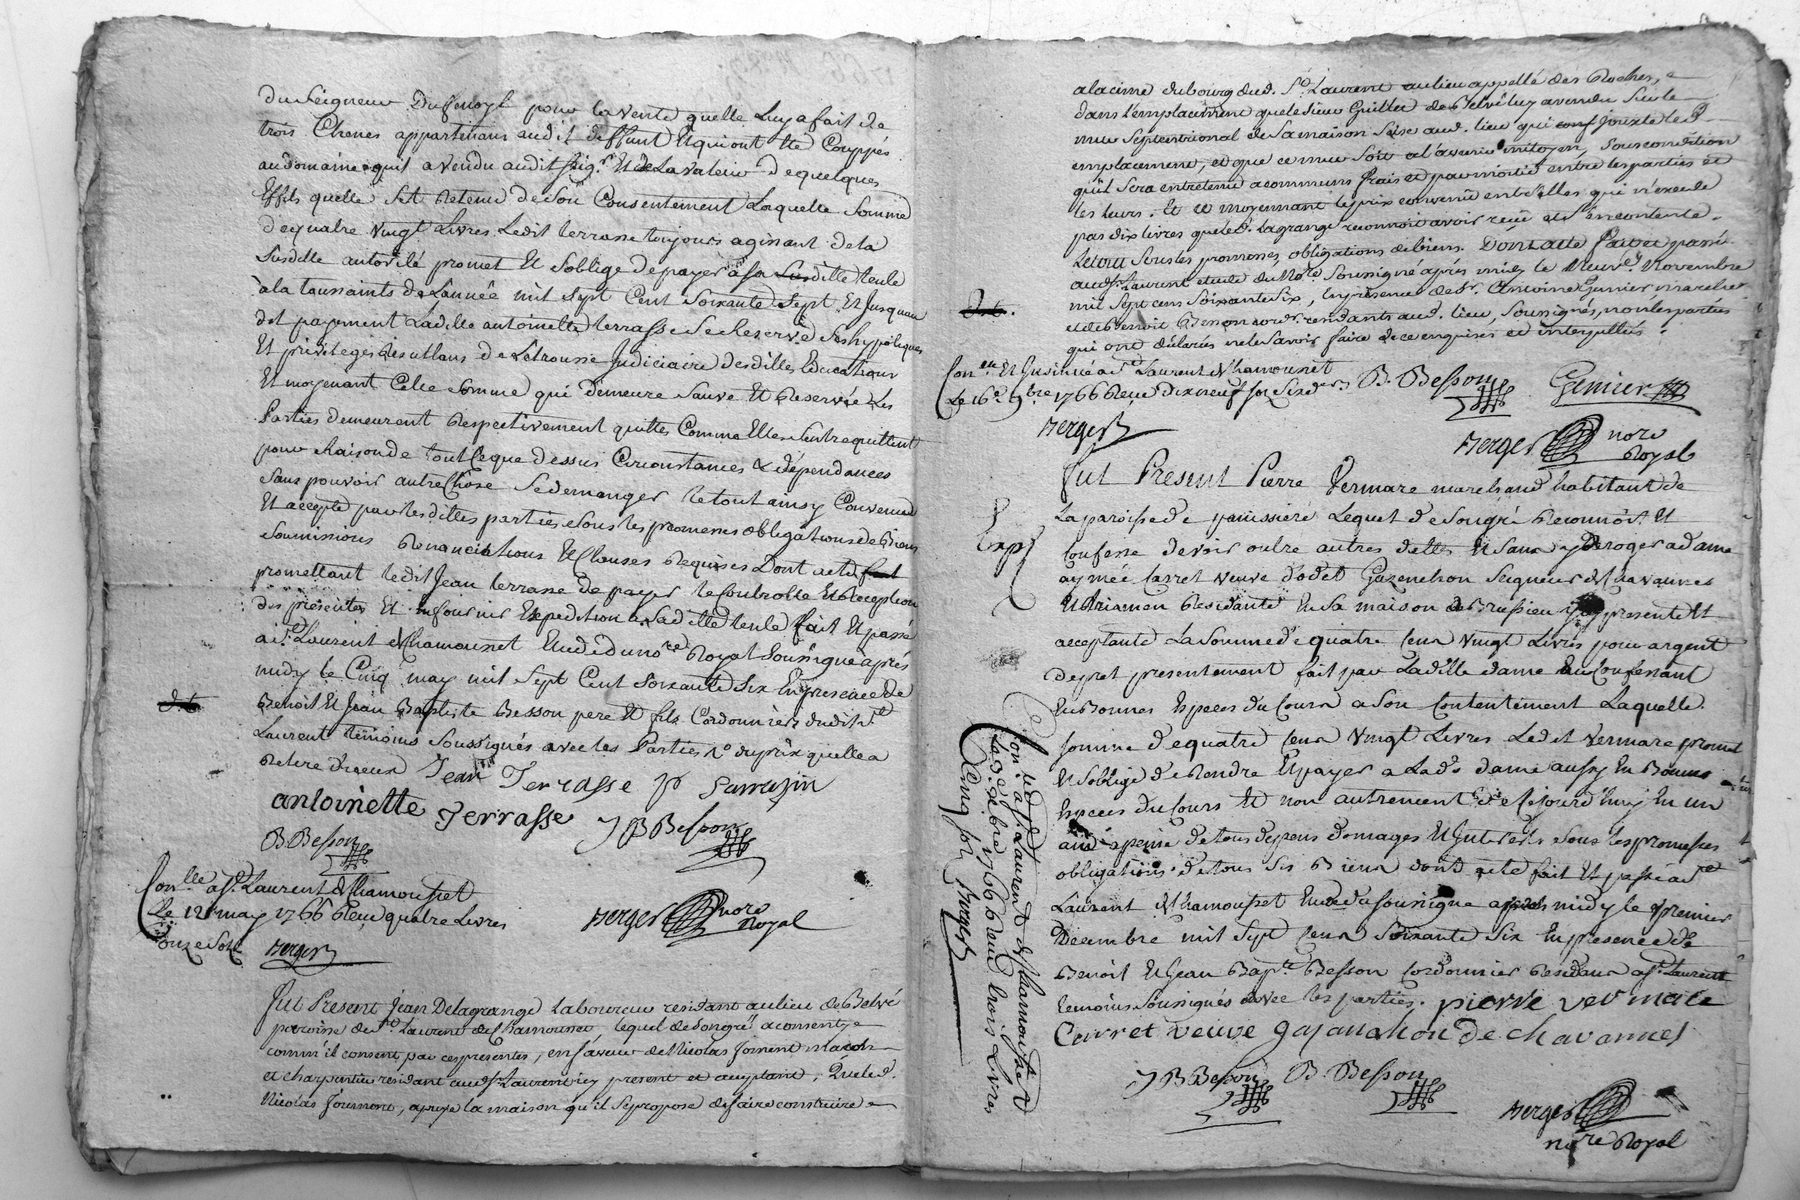 du Seigneur Dufenoyl pour la vente quelle luy a fait de
trois Chenes appartenans audit deffunt Et qui ont été Couppés
au domaine quil a vendu audit seigr. Et de La valeur de quelques
Effets quelle s'est Retenu de son Consentement Laquelle Somme
de quatre vingt Livres Ledit terrasse toujours agissant de la
Susditte autorité promet Et s'oblige de payer a sa ditte
a la toussaints de L'année mil sept Cent soixante sept Et jusquau
dit payement Laditte antoinette terrasse se Reserve ses hypotèques
Et privileges Resultans de Judiciaire desdittes
Et moyenant Cette somme qui demeure sauve Et Reservée Les
Parties demeurent Respectivement quittes Comme Elles s'entrequittent
pour Raison de tout Ce que dessus Circonstances & dépendances
sans pouvoir autre Chose se demander Le tout ainsy Convenu
Et accepté par lesdittes parties sous les promesses obligations de Biens
soumissions Renonciations Et Clauses Requises Dont acte
promettant ledit Jean terrasse de payer le Controlle Et Reception
des presentes Et fournir Expedition a Laditte fait Et passé
a st. Laurent de Chamousset Etude du nore Royal soussigné après
midy le Cinq may mil sept Cent soixante six En presence de
Benoit Et Jean Baptiste Besson pere Et fils Cordonniers dudit st
Laurent témoins soussignés avec les Parties du prix quelle a
Retiré d'iceux Jean Terrasse Sarrazin
antoinette Terrasse J B Besson
B Besson
Conlle a st. Laurent de Chamousset
Le 12 may 1766 Reçu quatre Livres
onze sols Berger
Berger nore
Royal
Fut Present Jean Delagrange Laboureur résidant au lieu de Belvé
paroisse de st. Laurent de Chamousset, lequel de son gré a consenty
comm'il consent par ces presentes, en faveur de Nicolas Joinent
et charpentier résidant aud. st. Laurent icy present et acceptant, Que led.
Nicolas, apuye la maison qu'il se propose de faire construire
a la cime du bourg dud. st. Laurent au lieu appellé des Roches,
dans l'emplacement que le sieur Guillet de Belvé luy a vendu sur le
mur septentrional de sa maison sise aud. lieu qui Jouxte led.
emplacement, et que ce mur soit a l'avenir mitoyen, sous condition
qu'il sera entretenu a communs frais et par moitié entre les parties et
les leurs. Et ce moyennant le prix convenu entre elles qui n'excede
pas dix livres que led. Lagrange reconnoit avoir reçu et s'en contente.
Le tout sous les promesses, obligations de biens. Dont acte Fait et passé
aud. st. Laurent etude du Nore. soussigné après midy le Neuve. Novembre
mil sept cens soixante six, en presence de sr. Antoine Genier
et de Benoit Besson cordr. résidants aud. lieu, soussignés, non les parties
qui ont déclarés ne le savoir faire de ce enquises et interpellés.
Conlé Et Insinué a st Laurent de Chamousset
Le 16e. 9bre 1766 Reçu Dix neuf sols six ders B. Besson Genier
Berger
Berger nore
Royal
Fut Present Pierre Vermare marchand habitant de
Exp
La paroisse de yzeissiere Lequel de son gré Reconnoit Et
Confesse devoir outre autres dettes Et sans y deroger a dame
aymée Carret veuve d'odet Gazanchon Seigneur de Chavannes
Residante En sa maison de Brussieu presente Et
acceptante La somme de quatre Cent vingt Livres pour argent
de pret presentement fait par Laditte dame au Confessant
En Bonnes Especes du Cours a son Contentement Laquelle
somme de quatre Cent Vingt Livres Ledit Vermare promet
Et s'oblige de Rendre Et payer a Lade. dame aussy En Bonnes
Especes du Cours Et non autrement de Cejourd'huy En un
an a peine de tous depens domages Et Interets sous les promesses
obligations de tous ses Biens dont acte fait Et passé a st
Laurent de Chamousset Etude du soussigné après midy le premier
Decembre mil sept Cent soixante six En presence de
Benoit Et Jean Bapte. Besson Cordonnier Residans a st. Laurent
temoins soussignés avec les parties. pierre vermare
Carret veuve gazanchon de chavannes
J B Besson B Besson
Berger
nore Royal
Conlé a st. Laurent de Chamousset
La 3e. Xbre 1766 Reçu trois Livres
Cinq sols Berger